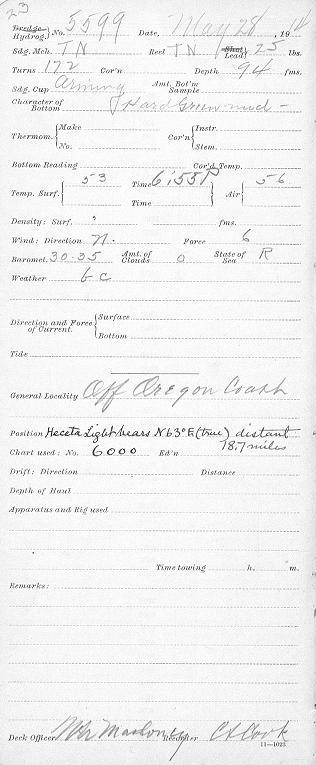 23
Dredge Hydrog. No. 5599 Date, May 28, 1914
Sdg. Mch. TN Reel TN Shot Lead 25 lbs.
Turns 172 Cor'n Depth 94 fms.
Sdg. Cup Arming Amt. Bot'm Sample
Character of Bottom Hard Green mud -
Thermom. Make No. Cor'n Instr. Stem.
Bottom Reading Cor'd Temp.
Temp. Surf. 53 Time 6:55P Time Air 56
Density: Surf. , fms.
Wind: Direction N. Force 6
Baromet. 30.35 Amt. of Clouds 0 State of Sea R
Weather bc
Direction and Force of Current. Surface Bottom
Tide
General Locality Off Oregon Coast
Position Heceta Light bears N63°E (true) distant
18.7 miles
Chart used: No. 6000 Ed'n
Drift: Direction Distance
Depth of Haul
Apparatus and Rig used
Time towing h. m.
Remarks:
Deck Officer Maloney Recorder Cook
11—1023